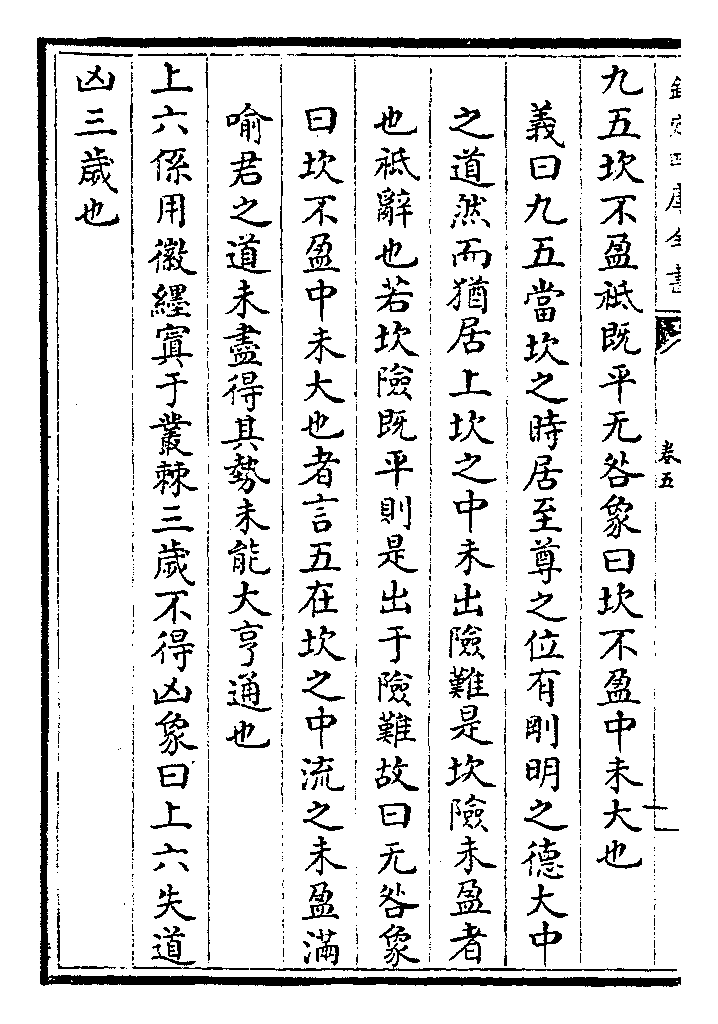 欽定四庫全書
卷五
九五坎不盈祗既平无咎象曰坎不盈中未大也
義曰九五當坎之時居至尊之位有剛明之德大中
之道然而猶居上坎之中未出險難是坎險未盈者
也祗辭也若坎險既平則是出于險難故曰无咎象
曰坎不盈中未大也者言五在坎之中流之未盈滿
喻君之道未盡得其勢未能大亨通也
上六係用徽纆寘于叢棘三歲不得凶象曰上六失道
凶三歲也